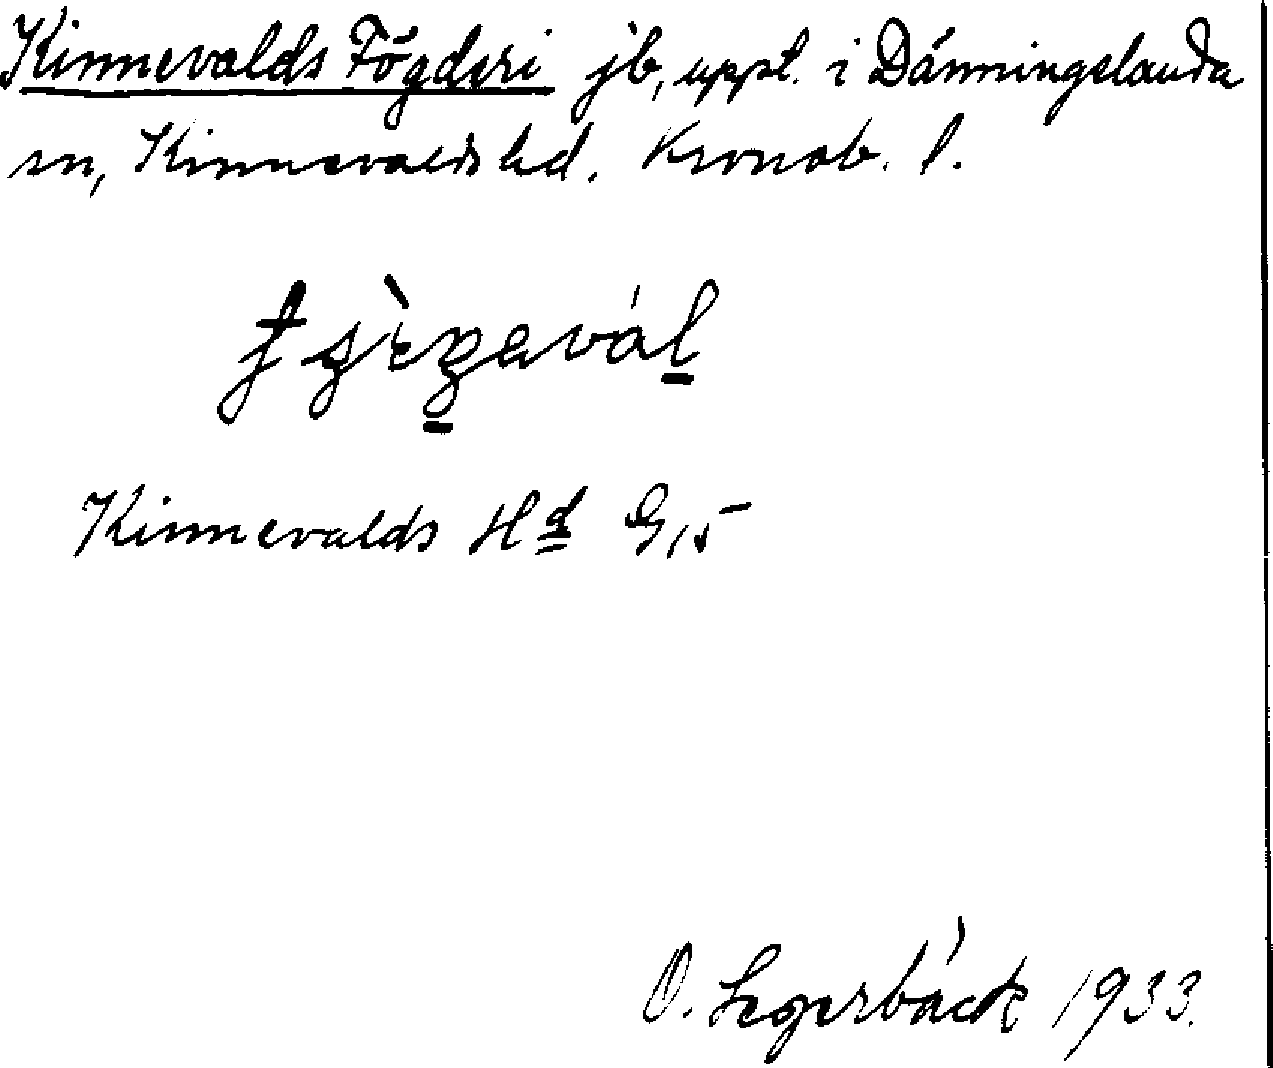 Kinnevalds Fögderi jb, uppt. i Dänningelanda
sn, Kinnevalds hd. Kronob. l.
Kinnevalds Hd G15
O. Segerbäck 1933.